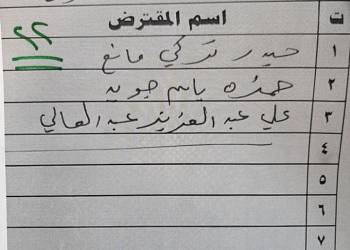 ت اسم المقترض
٢٢
١ حيدر تركي مانع
٢ حمزه ياسر جويد
٣ علي عبد العزيز عبد العالي
٤
٥
٦
٧